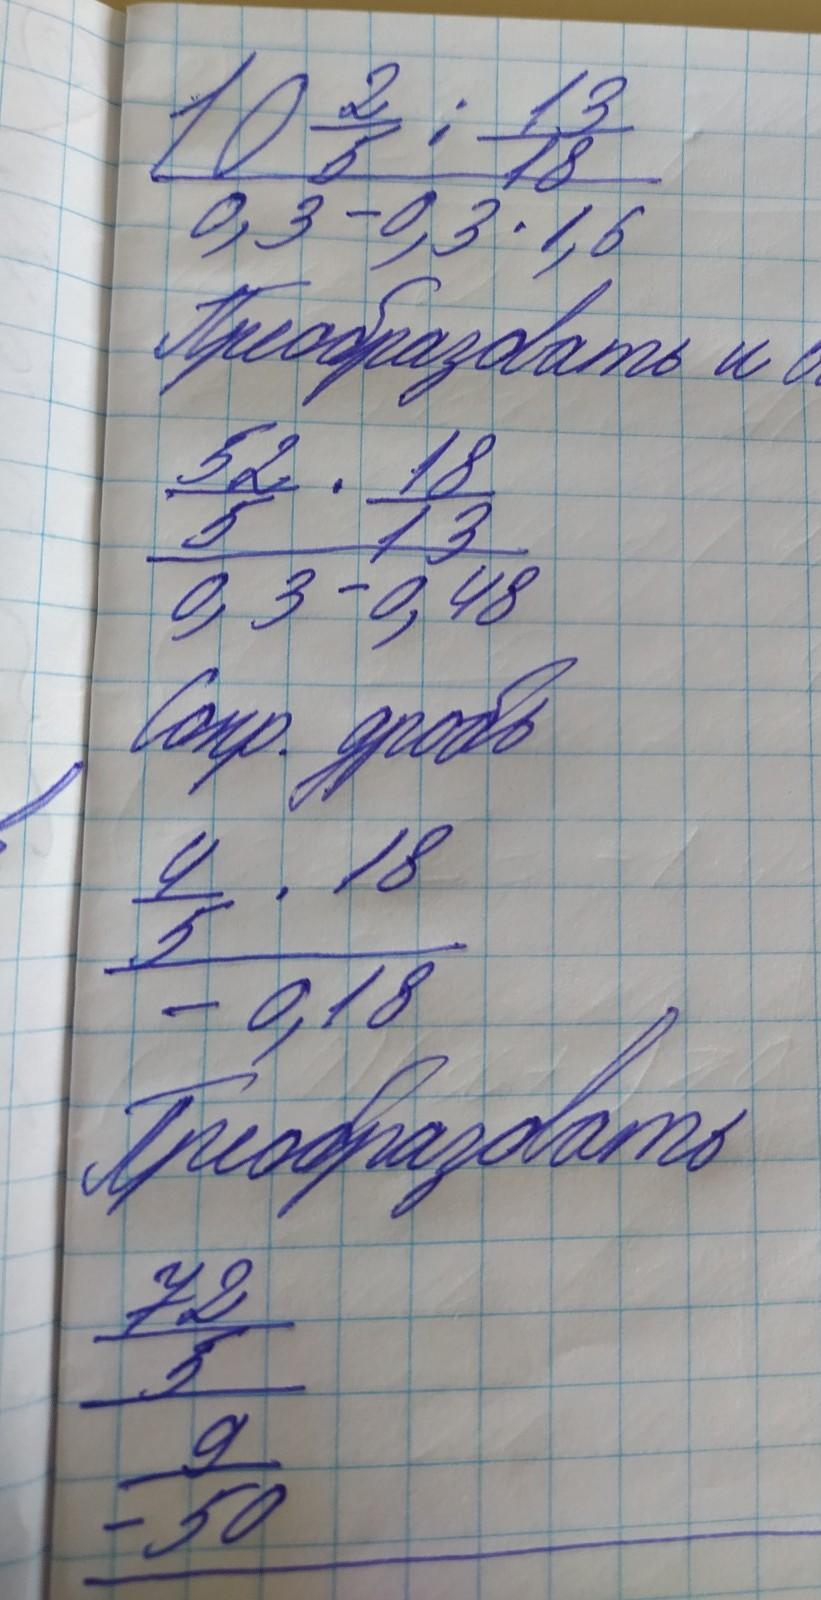 10 2/5 : 13/18
0,3 - 0,3 · 1,6
Преобразовать и
52/5 · 18/13
0,3 - 0,48
Сокр. дробь
4/5 · 18
- 0,18
Преобразовать
72/5
9/-50